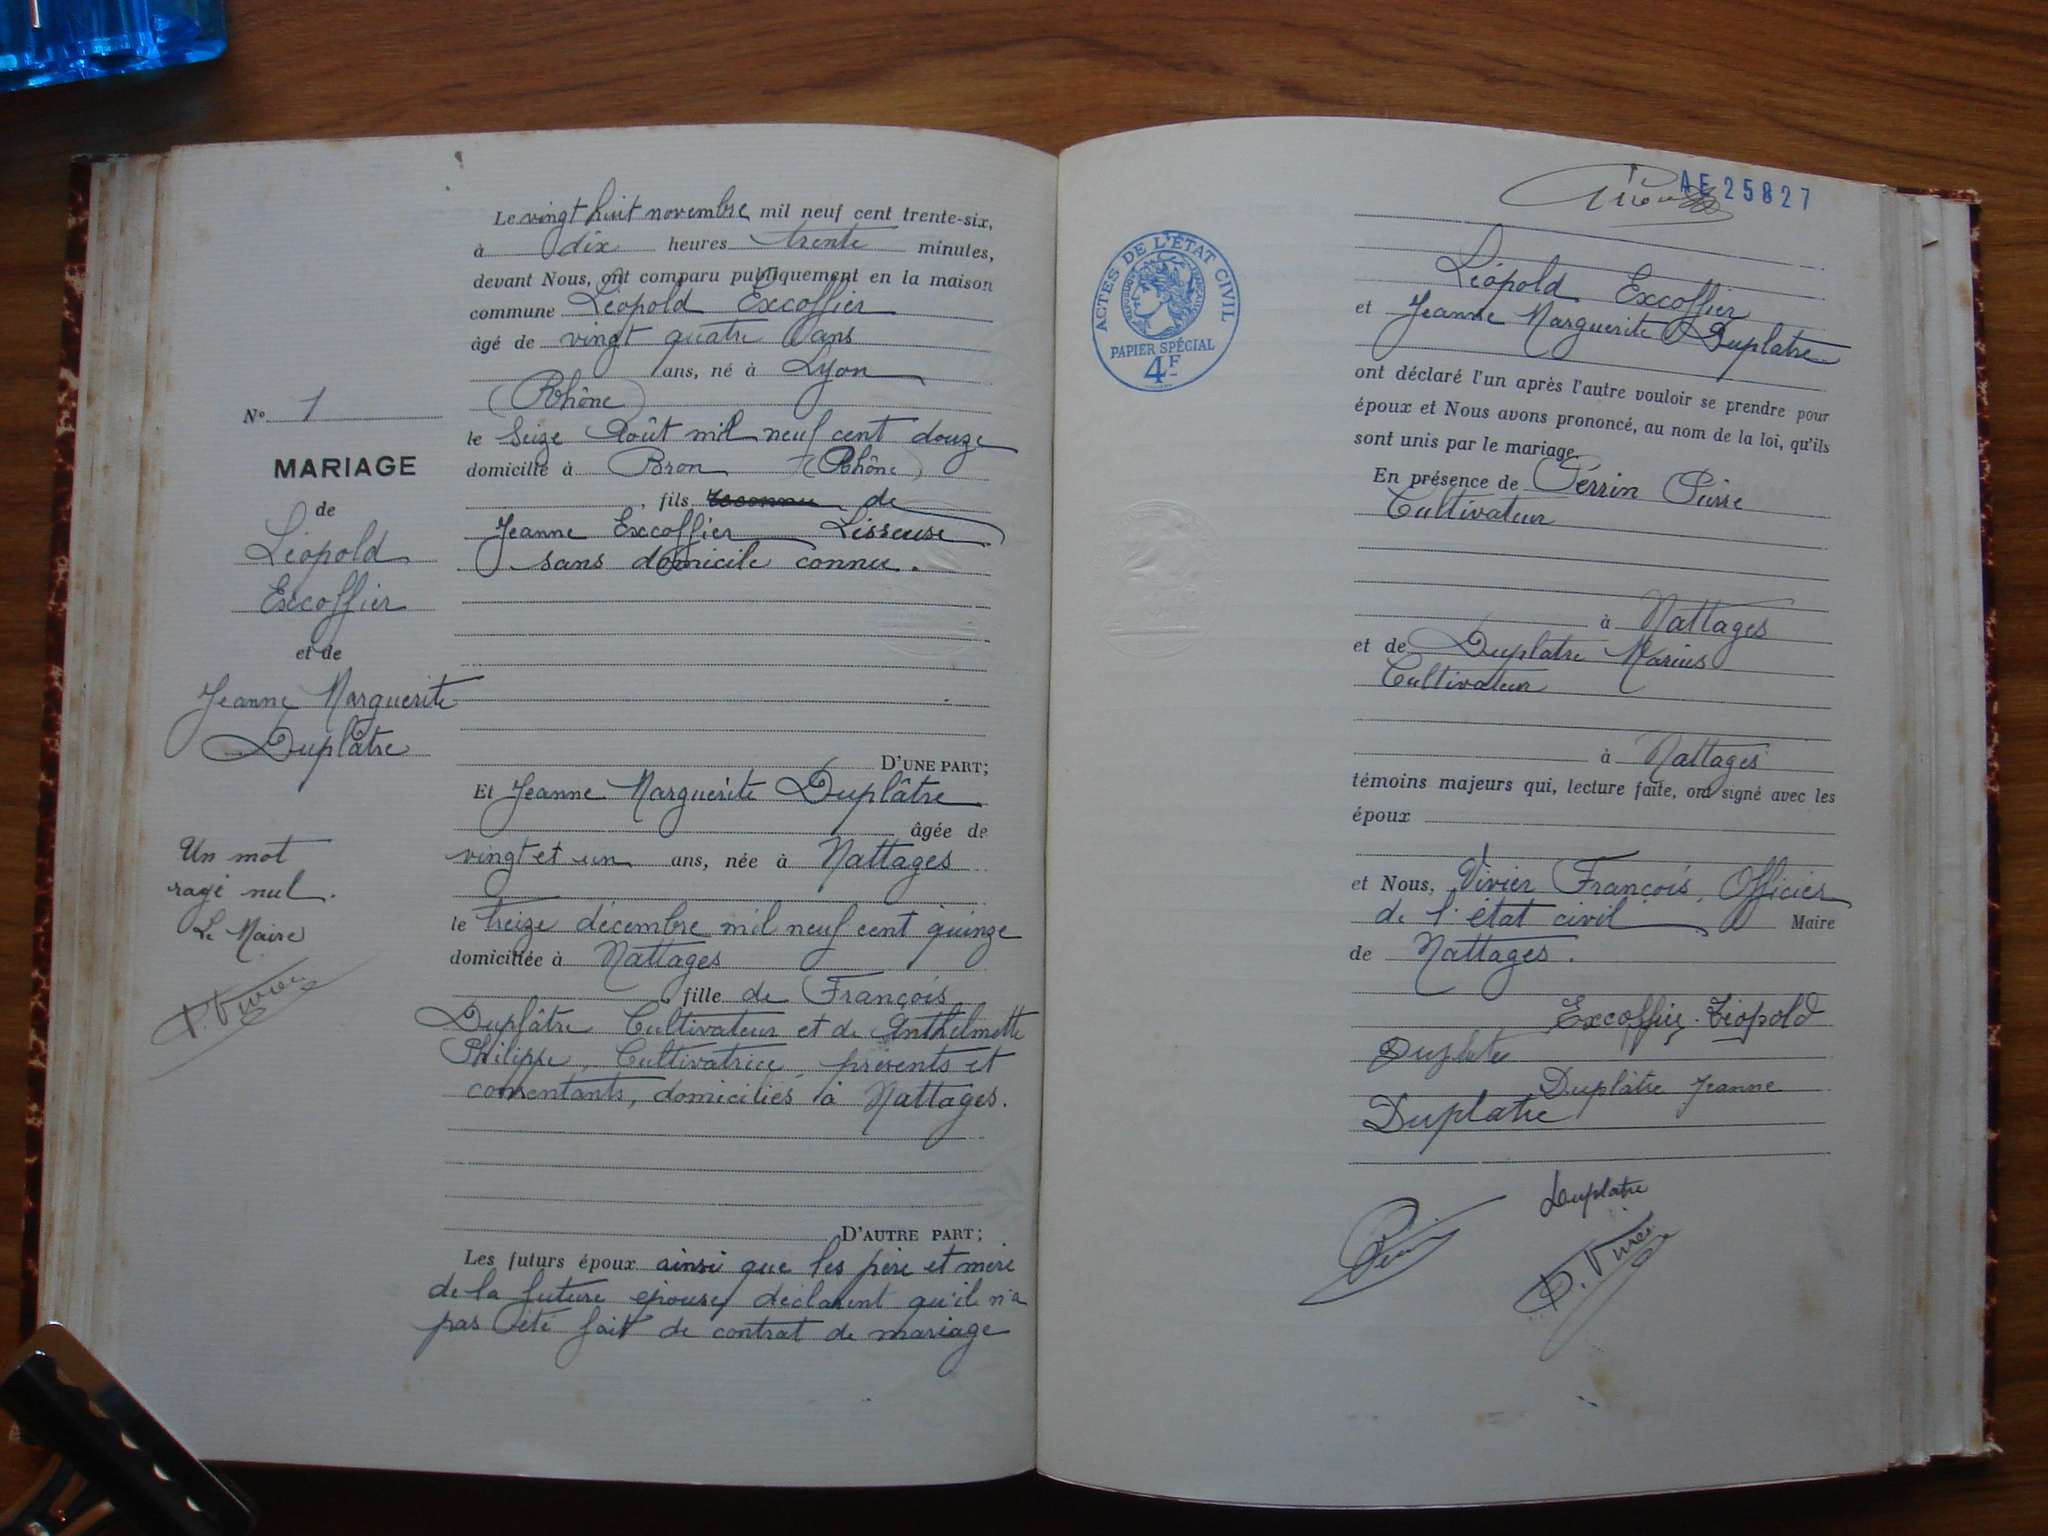 Le vingt huit novembre mil neuf cent trente-six,
à dix heures trente minutes,
devant Nous, ont comparu publiquement en la maison
commune Léopold Excoffier
âgé de vingt quatre ans
ans, né à Lyon
(Rhône)
le Seize Août mil neuf cent douze
domicilié à Bron (Rhône)
, fils reconnu de
Jeanne Excoffier Lisseuse
sans domicile connu.
D'UNE PART;
Et Jeanne Marguerite Duplâtre
âgée de
vingt et un ans, née à Nattages
le treize décembre mil neuf cent quinze
domiciliée à Nattages
, fille de François
Duplâtre Cultivateur et de Anthelmette
Philippe, Cultivatrice, présents et
consentants, domiciliés à Nattages.
D'AUTRE PART;
Les futurs époux ainsi que les père et mère
de la future épouse, déclarent qu'il n'a
pas été fait de contrat de mariage
N° 1
MARIAGE
de
Léopold
Excoffier
et de
Jeanne Marguerite
Duplâtre
Un mot
rayé nul.
Le Maire
AE 25827
ACTES DE L'ÉTAT CIVIL
RÉPUBLIQUE FRANÇAISE
PAPIER SPÉCIAL
4F
Léopold Excoffier
et Jeanne Marguerite Duplatre
ont déclaré l'un après l'autre vouloir se prendre pour
époux et Nous avons prononcé, au nom de la loi, qu'ils
sont unis par le mariage.
En présence de Perrin Pierre
Cultivateur
à Nattages
et de Duplatre Marius
Cultivateur
à Nattages
témoins majeurs qui, lecture faite, ont signé avec les
époux
et Nous, Vivier François, Officier
de l'état civil Maire
de Nattages.
Excoffier Léopold
Duplatre
Duplâtre Jeanne
Duplatre
Duplatre